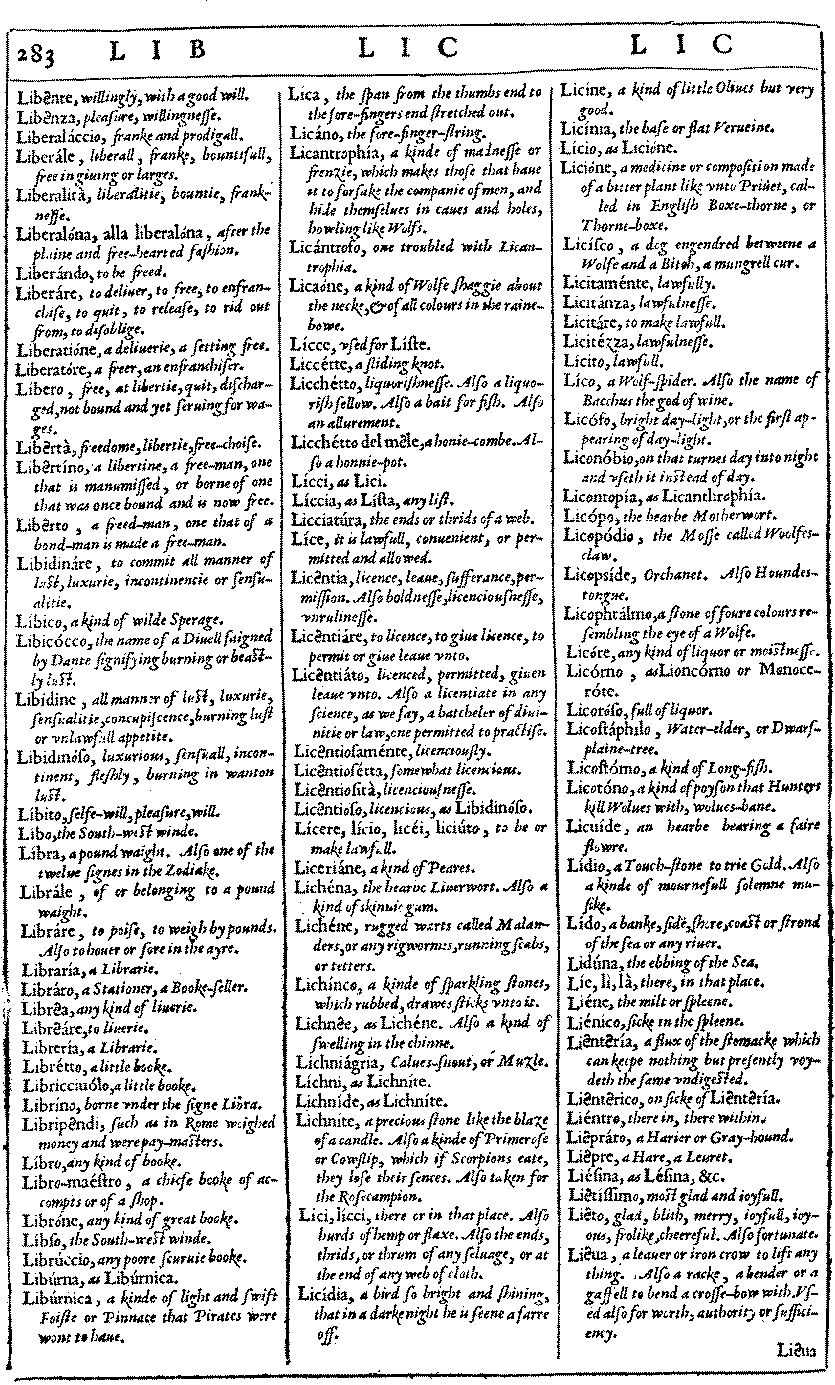 283 L I B L I C L I C
Libênte, willingly, with a good will.
Libênza, pleasure, willingnesse.
Liberaláccio, franke and prodigall.
Liberále, liberall, franke, bountifull,
free in giuing or larges.
Liberalità, liberalitie, bountie, franke-
nesse.
Liberalóna, alla liberalóna, after the
plaine and free-hearted fashion.
Liberándo, to be freed.
Liberáre, to deliuer, to free, to enfran-
chise, to quit, to release, to rid out
from, to disoblige.
Liberatióne, a deliuerie, a setting free.
Liberatóre, a freer, an enfranchiser.
Líbero, free, at libertie, quit, dischar-
ged, not bound and yet seruing for wa-
ges.
Libêrtà, freedome, libertie, free-choise.
Libêrtíno, a libertine, a free-man, one
that is manumissed, or borne of one
that was once bound and is now free.
Libêrto, a freed-man, one that of a
bond-man is made a free-man.
Libidináre, to commit all manner of
lust, luxurie, incontinencie or sensu-
alitie.
Líbico, a kind of wilde Sperage.
Libicócco, the name of a Diuell faigned
by Dante signifying burning or beast-
ly lust.
Libídine, all manner of lust, luxurie,
sensualitie, concupiscence, burning lust
or vnlawfull appetite.
Libidinóso, luxurious, sensuall, incon-
tinent, fleshly, burning in wanton
lust.
Líbito, selfe-will, pleasure, will.
Libo, the South-west winde.
Líbra, a pound waight. Also one of the
twelue signes in the Zodiake.
Librále, of or belonging to a pound
waight.
Libráre, to poise, to weigh by pounds.
Also to houer or sore in the ayre.
Libraría, a Librarie.
Libráro, a Stationer, a Booke-seller.
Librêa, any kind of liuerie.
Librêáre, to liuerie.
Librería, a Librarie.
Librétto, a little booke.
Libricciuólo, a little booke.
Libríno, borne vnder the signe Libra.
Libripêndi, such as in Rome weighed
money and were pay-masters.
Libro, any kind of booke.
Libro-maéstro, a chiefe booke of ac-
compts or of a shop.
Libróne, any kind of great booke.
Libso, the South-west winde.
Librúccio, any poore scuruie booke.
Libúrna, as Libúrnica.
Libúrnica, a kinde of light and swift
Foiste or Pinnace that Pirates were
wont to haue.
Lica, the span from the thumbs end to
the fore-fingers end stretched out.
Licáno, the fore-finger-string.
Licantrophía, a kinde of madnesse or
frenzie, which makes those that haue
it to forsake the companie of men, and
hide themselues in caues and holes,
howling like Wolfs.
Licántrofo, one troubled with Lican-
trophia.
Licaóne, a kind of Wolfe shaggie about
the necke, & of all colours in the raine-
bowe.
Lícce, vsed for Líste.
Liccétte, a sliding knot.
Licchétto, liquorishnesse. Also a liquo-
rish fellow. Also a bait for fish. Also
an allurement.
Licchétto del mêle, a honie-combe. Al-
so a honnie-pot.
Lícci, as Lici.
Líccia, as Lísta, any list.
Licciatúra, the ends or thrids of a web.
Líce, it is lawfull, conuenient, or per-
mitted and allowed.
Licêntia, licence, leaue, sufferance, per-
mission. Also boldnesse, licenciousnesse,
vnrulinesse.
Licêntiáre, to licence, to giue licence, to
permit or giue leaue vnto.
Licêntiáto, licenced, permitted, giuen
leaue vnto. Also a licentiate in any
science, as we say, a batcheler of diui-
nitie or law, one permitted to practise.
Licêntiosaménte, licenciously.
Licêntiosétta, somewhat licencious.
Licêntiosità, licenciousnesse.
Licêntióso, licencious, as Libidinóso.
Lícere, lício, licéi, liciúto, to be or
make lawfull.
Liceriáne, a kind of Peares.
Lichéna, the hearbe Liuerwort. Also a
kind of skinnie gum.
Lichéne, rugged warts called Malan-
ders, or any rigwormes, running scabs,
or tetters.
Lichínco, a kinde of sparkling stones,
which rubbed, drawes sticks vnto it.
Lichnêe, as Lichéne. Also a kind of
swelling in the chinne.
Lichniágria, Calues-snout, or Muzle.
Líchni, as Lichníte.
Lichníde, as Lichníte.
Lichníte, a precious stone like the blaze
of a candle. Also a kinde of Primerose
or Cowslip, which if Scorpions eate,
they lose their sences. Also taken for
the Rosecampion.
Lici, licci, there or in that place. Also
hurds of hemp or flaxe. Also the ends,
thrids, or thrum of any seluage, or at
the end of any web of cloth.
Licídia, a bird so bright and shining,
that in a darke night he is seene a farre
off.
Licíne, a kind of little Oliues but very
good.
Licínia, the base or flat Verueine.
Lício, as Licióne.
Licióne, a medicine or composition made
of a bitter plant like vnto Priuet, cal-
led in English Boxe-thorne, or
Thorne-boxe.
Licísco, a dog engendred betweene a
Wolfe and a Bitch, a mungrell cur.
Licitaménte, lawfully.
Licitánza, lawfulnesse.
Licitáre, to make lawfull.
Licitézza, lawfulnesse.
Lícito, lawfull.
Líco, a Wolf-spider. Also the name of
Bacchus the god of wine.
Licófo, bright day-light, or the first ap-
pearing of day-light.
Liconóbio, on that turnes day into night
and vseth it instead of day.
Licontopía, as Licanthrophía.
Licópo, the hearbe Motherwort.
Licopódio, the Mosse called Woolfes-
claw.
Licopside, Orchanet. Also Houndes-
tongue.
Licophtálmo, a stone of foure colours re-
sembling the eye of a Wolfe.
Licóre, any kind of liquor or moistnesse.
Licórno, as Lioncórno or Monoce-
róte.
Licoróso, full of liquor.
Licostáphilo, Water-elder, or Dwarf-
plaine-tree.
Licostómo, a kind of Long-fish.
Licotóno, a kind of poyson that Hunters
kill Wolues with, wolues-bane.
Licuíde, an hearbe bearing a faire
flowre.
Lídio, a Touch-stone to trie Gold. Also
a kinde of mournefull solemne mu-
sike.
Lído, a banke, side, shore, coast or strond
of the sea or any riuer.
Lidúna, the ebbing of the Sea.
Líe, lì, là, there, in that place.
Liéne, the milt or spleene.
Liénico, sicke in the spleene.
Liêntêría, a flux of the stomacke which
can keepe nothing but presently voy-
deth the same vndigested.
Liêntêrico, on sicke of Liêntêría.
Liéntro, there in, there within.
Liêpráto, a Harier or Gray-hound.
Liêpre, a Hare, a Leuret.
Liésina, as Lésina, &c.
Liêtíssimo, most glad and ioyfull.
Liêto, glad, blith, merry, ioyfull, ioy-
ous, frolike, cheereful. Also fortunate.
Liêua, a leauer or iron crow to lift any
thing. Also a racke, a bender or a
gaffell to bend a crosse-bow with. Vs-
ed also for worth, authority or suffici-
ency.
Liêua